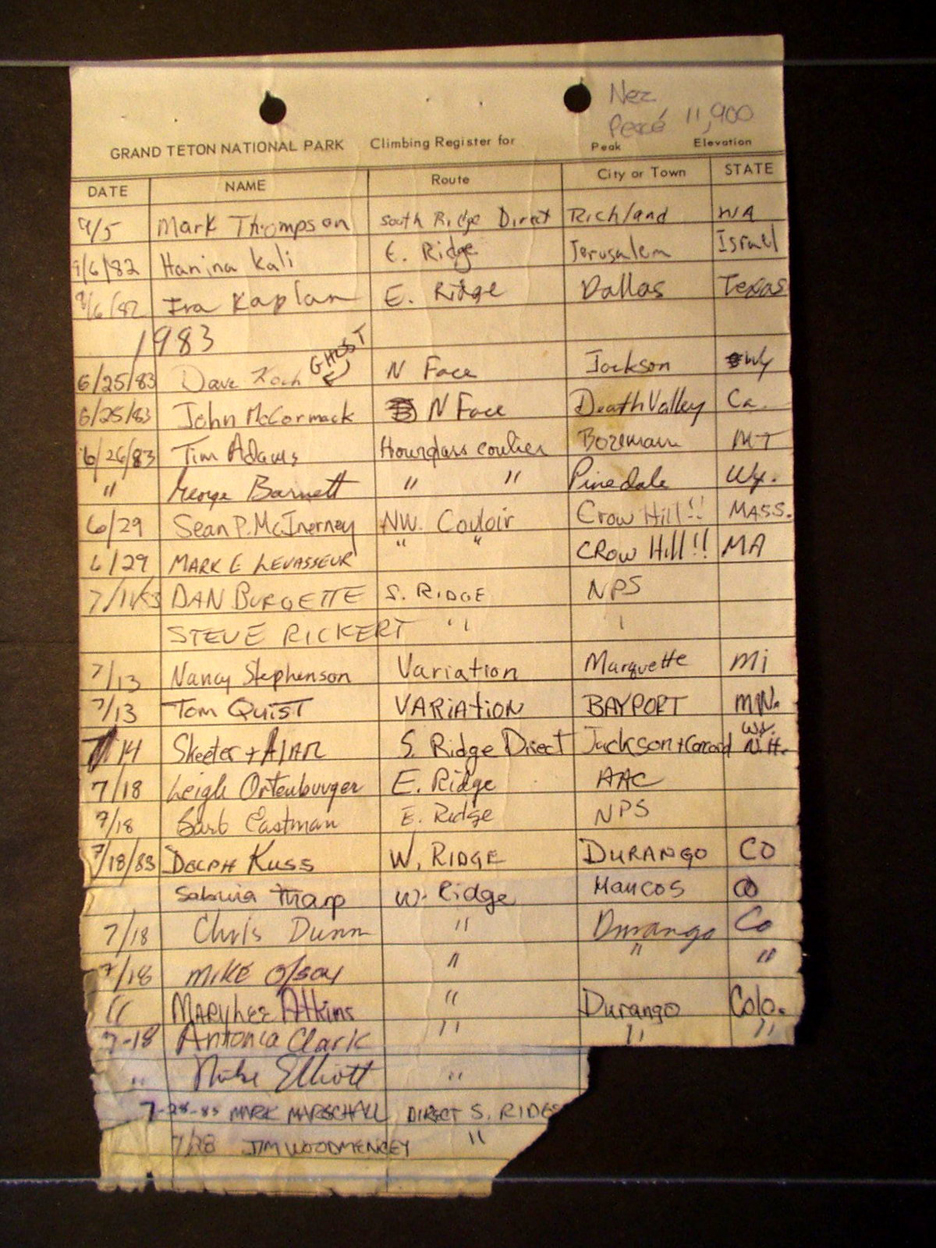 Nez
Percé 11,900
GRAND TETON NATIONAL PARK Climbing Register for Peak Elevation
DATE NAME Route City or Town STATE
9/5 Mark Thompson South Ridge Direct Richland WA
9/6/82 Hanina Kali E. Ridge Jerusalem Israel
9/6/82 Ira Kaplan E. Ridge Dallas Texas
1983
GHOST
6/25/83 Dave Koch N Face Jackson Wy
6/25/83 John McCormack N Face Death Valley Ca.
6/26/83 Tim Adams Hourglass coulier Bozeman MT
" George Barnett " " Pinedale Wy.
6/29 Sean P. McInerney NW. Couloir Crow Hill!! MASS.
6/29 MARK E LEVASSEUR " " CROW Hill!! MA
7/11/83 DAN BURGETTE S. RIDGE NPS
STEVE RICKERT " "
7/13 Nancy Stephenson Variation Marquette Mi
7/13 Tom QUIST VARIATION BAYPORT MN.
14 Skeeter + AlAN S. Ridge Direct Jackson + Concord Wy. N.H.
7/18 Leigh Ortenburger E. Ridge AAC
7/18 Barb Eastman E. Ridge NPS
7/18/83 DOLPH KUSS W. RIDGE DURANGO CO
Tharp W. Ridge Mancos CO
7/18 Chris Dunn " Durango Co
7/18 MIKE Olson " " "
" MARYLEE Atkins " Durango Colo.
7-18 Antonia Clark " " "
" Mike Elliott "
7-28-83 MARK MARSCHALL DIRECT S. RIDGE
7/28 JIM WOODMENCEY "